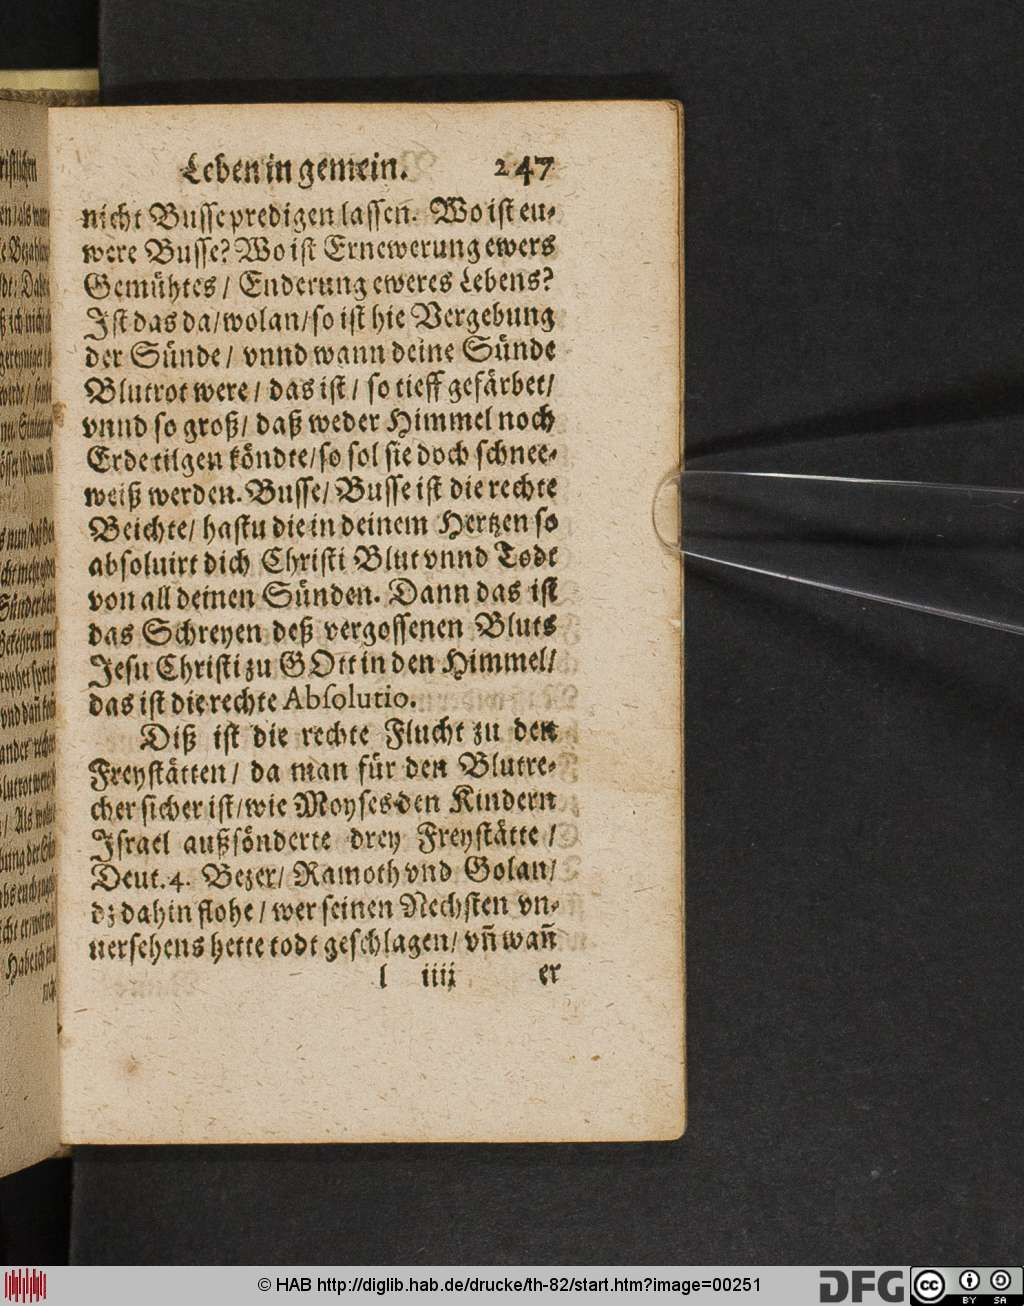 Leben in gemein. 247
nicht Busse predigen lassen. Wo ist eu-
were Busse? Wo ist Ernewerung ewers
Gemühtes / Enderung eweres Lebens?
Ist das da/wolan/so ist hie Vergebung
der Sünde / vnnd wann deine Sünde
Blutrot were / das ist / so tieff gefärbet/
vnnd so groß/ daß weder Himmel noch
Erde tilgen köndte/so sol sie doch schnee-
weiß werden. Busse/ Busse ist die rechte
Beichte/ hastu die in deinem Hertzen so
absoluirt dich Christi Blut vnnd Todt
von all deinen Sünden. Dann das ist
das Schreyen deß vergossenen Bluts
Jesu Christi zu GOtt in den Himmel/
das ist die rechte Absolutio.
Diß ist die rechte Flucht zu den
Freystätten/ da man für den Blutre-
cher sicher ist/wie Moyses den Kindern
Israel außsönderte drey Freystätte /
Deut. 4. Bezer/ Ramoth vnd Golan/
dz dahin flohe / wer seinen Nechsten vn-
uersehens hette todt geschlagen/ vn̄ wan̄
l iiij er
© HAB http://diglib.hab.de/drucke/th-82/start.htm?image=00251
DFG
cc BY SA